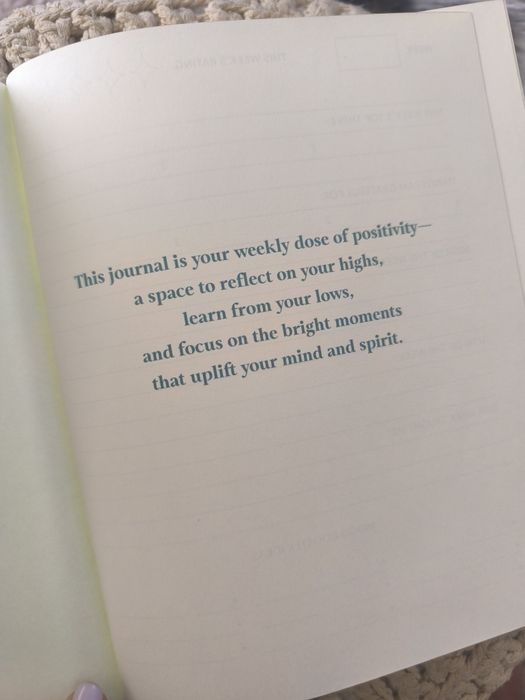 This journal is your weekly dose of positivity—
a space to reflect on your highs,
learn from your lows,
and focus on the bright moments
that uplift your mind and spirit.